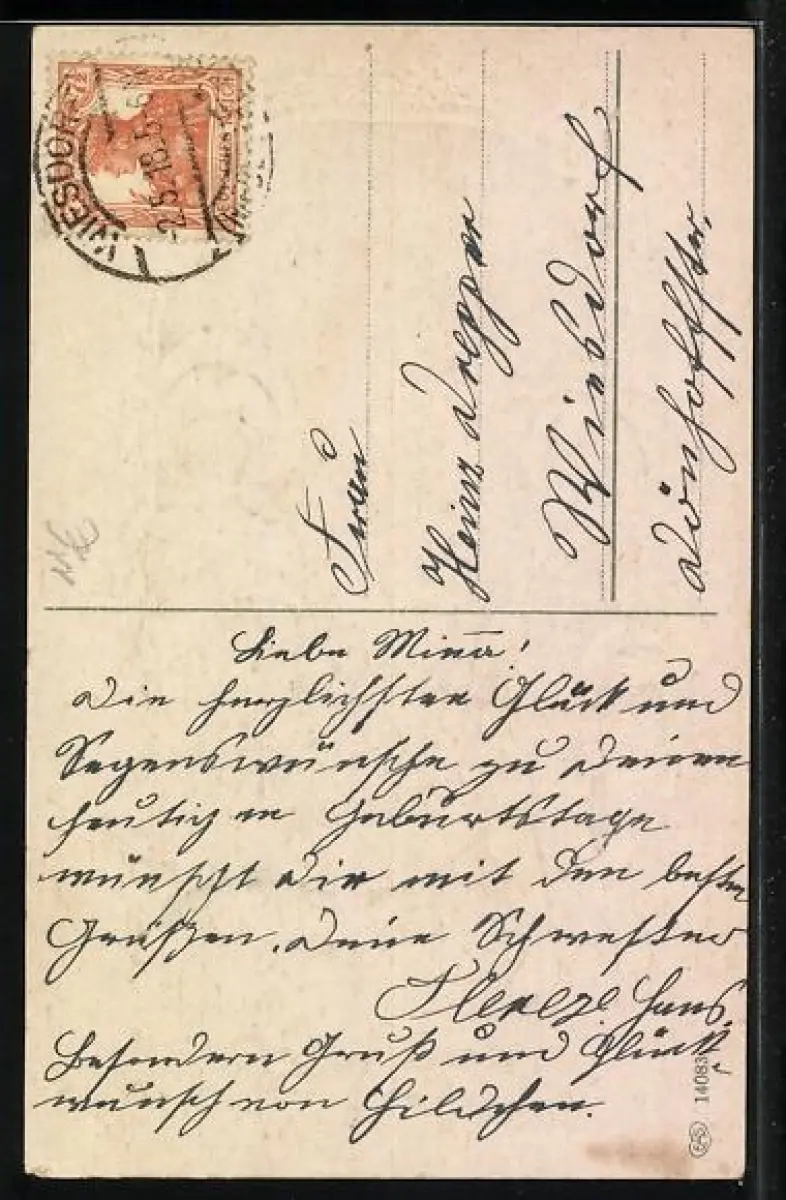 7½
WIESDORF
-2.5.18.5-6
Frau
Heinr. Drepper
Wiesdorf
Dönhoffstr.
Liebe Mina!
Die herzlichsten Glück und
Segenswünsche zu Deinen
heutigen Geburtstage
wünscht Dir mit den besten
Grüßen, Deine Schwester
Hans.
Besondern Gruß und Glück-
wunsch von Hildchen.
14083